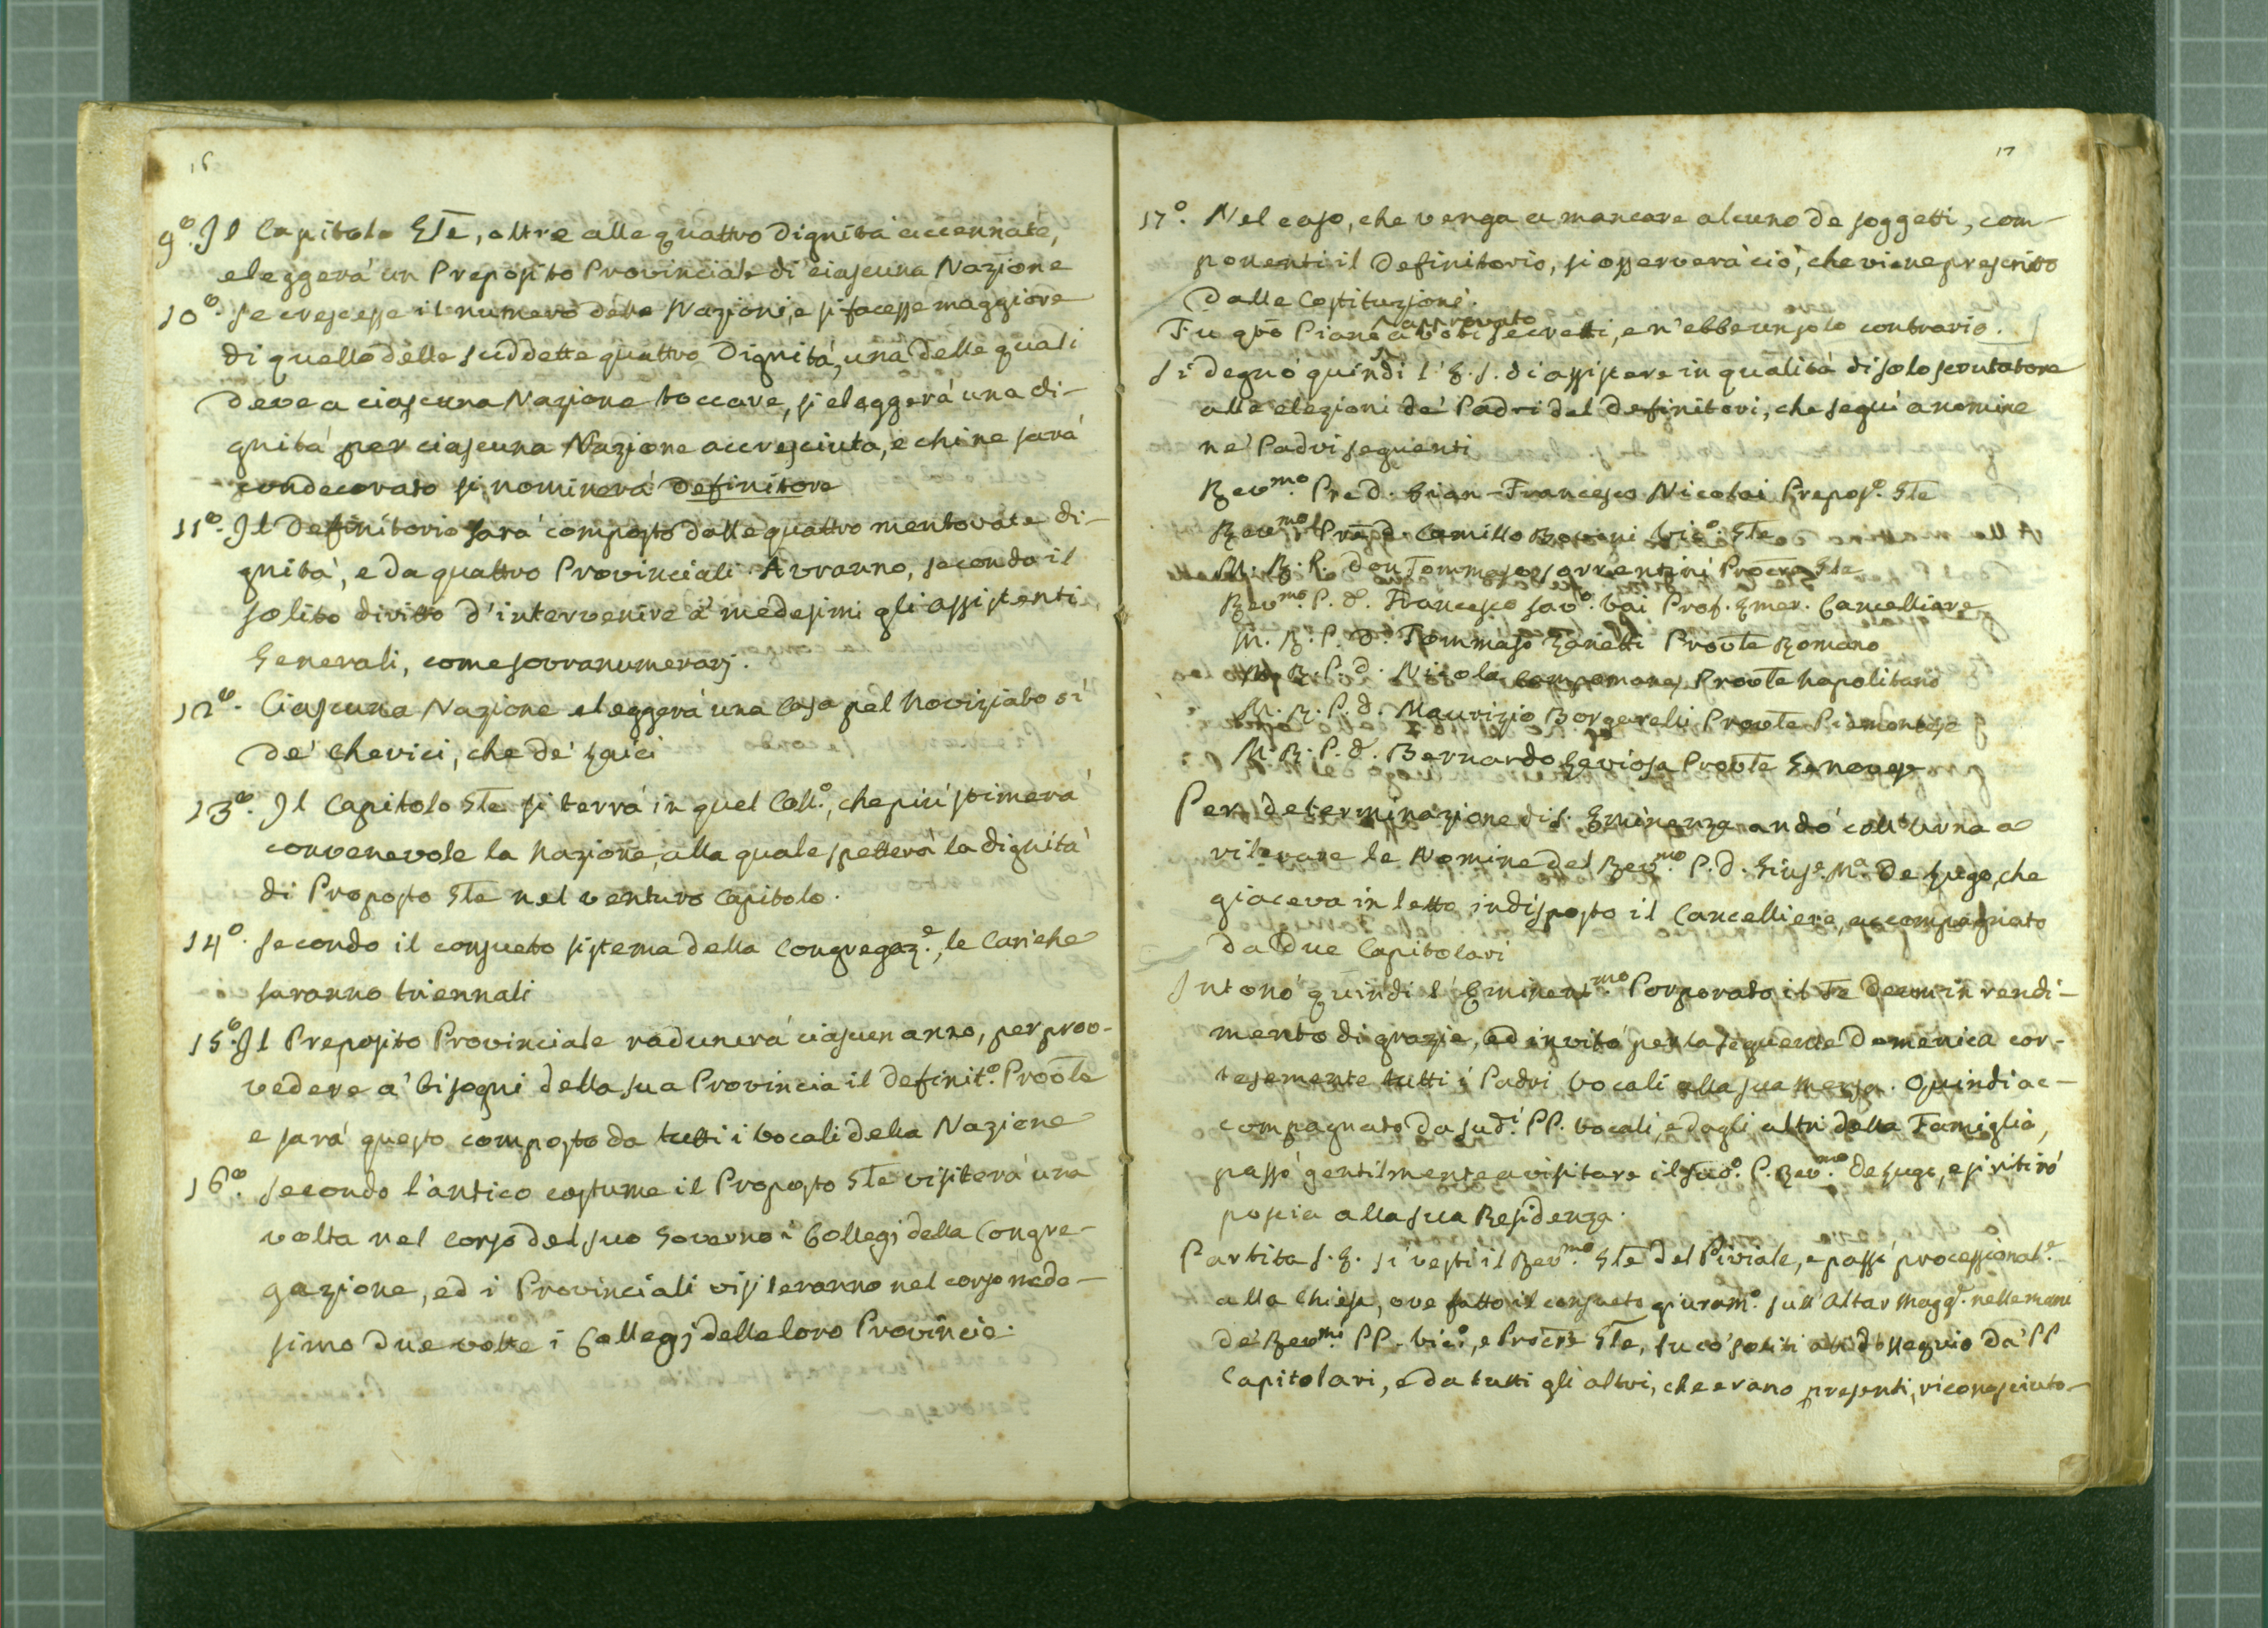 16
9º. Il Capitolo Gle, oltre alle quattro Dignità accennate,
eleggerà un Preposito Provinciale di ciascuna Nazione
10º. Se crescesse il numero delle Nazioni, e si facesse maggiore
di quello delle suddette quattro Dignità, una delle quali
deve a ciascuna Nazione toccare, si eleggerà una di-
gnità per ciascuna Nazione accresciuta, e chi ne sarà
condecorato si nominerà Definitore
11º. Il Definitorio sarà composto dalle quattro mentovate di-
gnità, e da quattro Provinciali. Avranno, secondo il
solito diritto d'intervenire a' medesimi gli Assistenti
Generali, come sovranumerarj.
12º. Ciascuna Nazione eleggerà una Casa pel Noviziato sì
de' Cherici, che de' Laici
13º. Il Capitolo Gle si terrà in quel Coll.º, che più stimerà
convenevole la Nazione, alla quale spetterà la dignità
di Proposto Gle nel venturo Capitolo.
14º. Secondo il consueto sistema della Congregaz.e, le Cariche
saranno triennali
15º. Il Preposito Provinciale radunerà ciascun anno, per prov-
vedere a' bisogni della sua Provincia il Definit.º Provle
e sarà questo composto da tutti i Vocali della Nazione
16º. Secondo l'antico costume il Proposto Gle visiterà una
volta nel corso del suo Governo i Collegj della Congre-
gazione, ed i Provinciali visiteranno nel corso mede-
simo due volte i Collegj delle loro Provincie.
17
17º. Nel caso, che venga a mancare alcuno de soggetti, com-
ponenti il Definitorio, si osserverà ciò, che viene prescritto
dalle Costituzioni.
approvato
Fu qto Piano a voti secreti, e n'ebbe un solo contrario.
Si degnò quindi l'E.S. di assistere in qualità di solo scrutatore
alle elezioni de' Padri del Definitori, che seguì a nomine
ne' Padri seguenti
Rev.mo Pre d. Gian-Francesco Nicolai Prepos.º Gle
Rev.mo Pre d. Camillo Bovoni Vic.º Gle
M. R. P. don Tommaso Sorrentini Procre Gle
Rev.mo P. d. Francesco Sav.º Vai Prof. Emer. Cancelliere
M. R. P. d. Tommaso Zanetti Provle Romano
M. R. P. d. Nicola Campomanes Provle Napolitano
M. R. P. d. Maurizio Borgarelli Provle Piemontese
M. R. P. d. Bernardo Laviosa Provle Genovese
Per determinazione di S. Eminenza andò coll'Urna a
rilevare le Nomine del Rev.mo P. d. Gius.e M.a De Lugo, che
giaceva in letto indisposto il Cancelliere, accompagnato
da due Capitolari
Intonò quindi l'Eminent.mo Porporato il Te Deum in rendi-
mento di grazie, ed invitò per la seguente Domenica cor-
tesemente tutti i Padri Vocali alla sua mensa. Quindi ac-
compagnato da sud.i PP. Vocali, e dagli altri della Famiglia,
passò gentilmente a visitare il sud.º P. Rev.mo de Lugo, e si ritirò
poscia alla sua Residenza.
Partita S. E. si vestì il Rev.mo Gle del Piviale, e passò processional.e
alla Chiesa, ove fatto il consueto giuram.º sull'Altar Magg.e nelle mani
de' Rev.mi PP. Vic.º, e Procre Gle, fu co' soliti atti d'ossequio da' PP
Capitolari, e da tutti gli altri, che erano presenti, riconosciuto